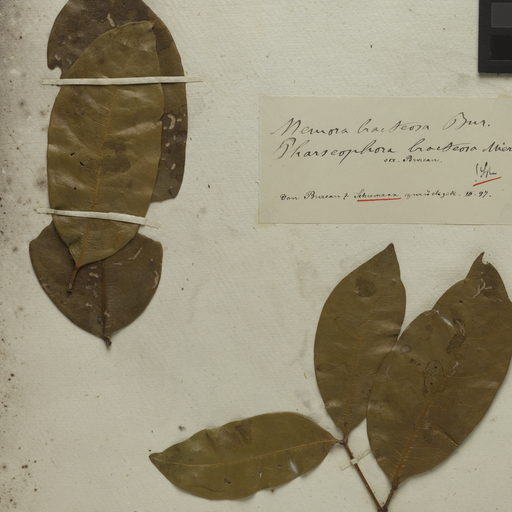 Memora bracteosa Bur.
Pharseophora bracteosa Miers
sec. Bureau.
Don Bureau f. Schumann 10.97.